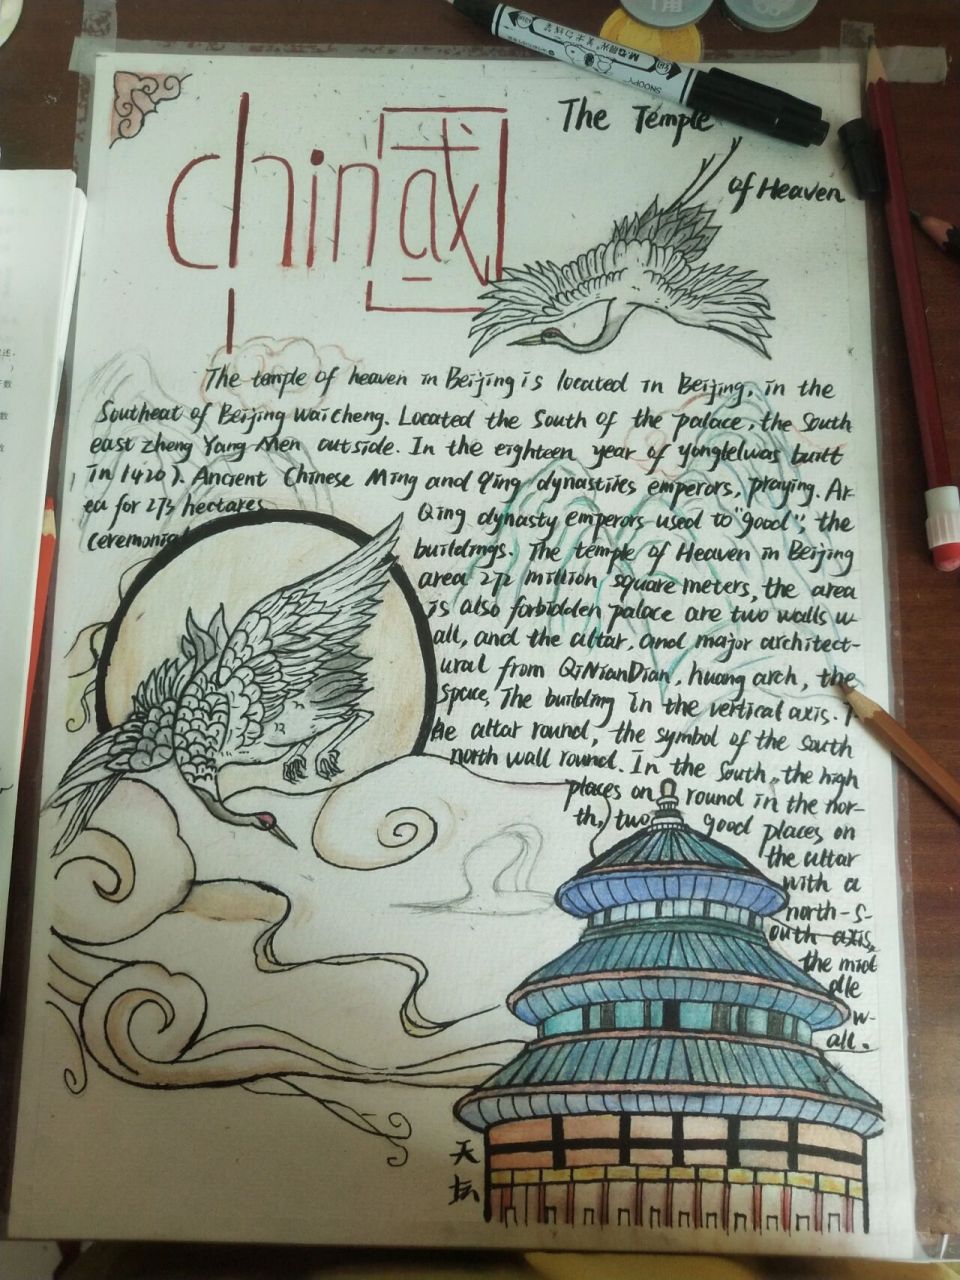 china國
The Temple
of Heaven
The temple of heaven in Beijing is located in Beijing, in the
Southeat of Beijing waicheng. Located the South of the palace, the South
east zheng Yang Men outside. In the eighteen year of yonglelwas built
in 1420). Ancient Chinese Ming and Qing dynastites emperors, praying. Ar
ea for 273 hectares
ceremonial
Qing dynasty emperors used to "good": the
buildings. The temple of Heaven in Beijing
area 272 million square meters, the area
is also forbidden palace are two walls w
all, and the altar, and major architect-
ural from QiNianDian, huang arch, the
space, The building in the vertical axis. T
he altar round, the symbol of the south
north wall round. In the South, the high
places on round in the nor-
th, two good places on
the altar
with a
north-s-
outh axis,
the mid
dle
w-
all.
天
坛
SNOOPY
M&G